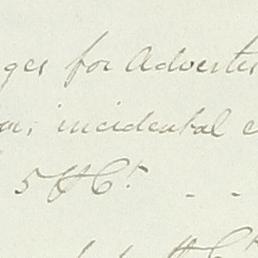 ges for Advertis
incidental e
5 ℔ Ct. - -